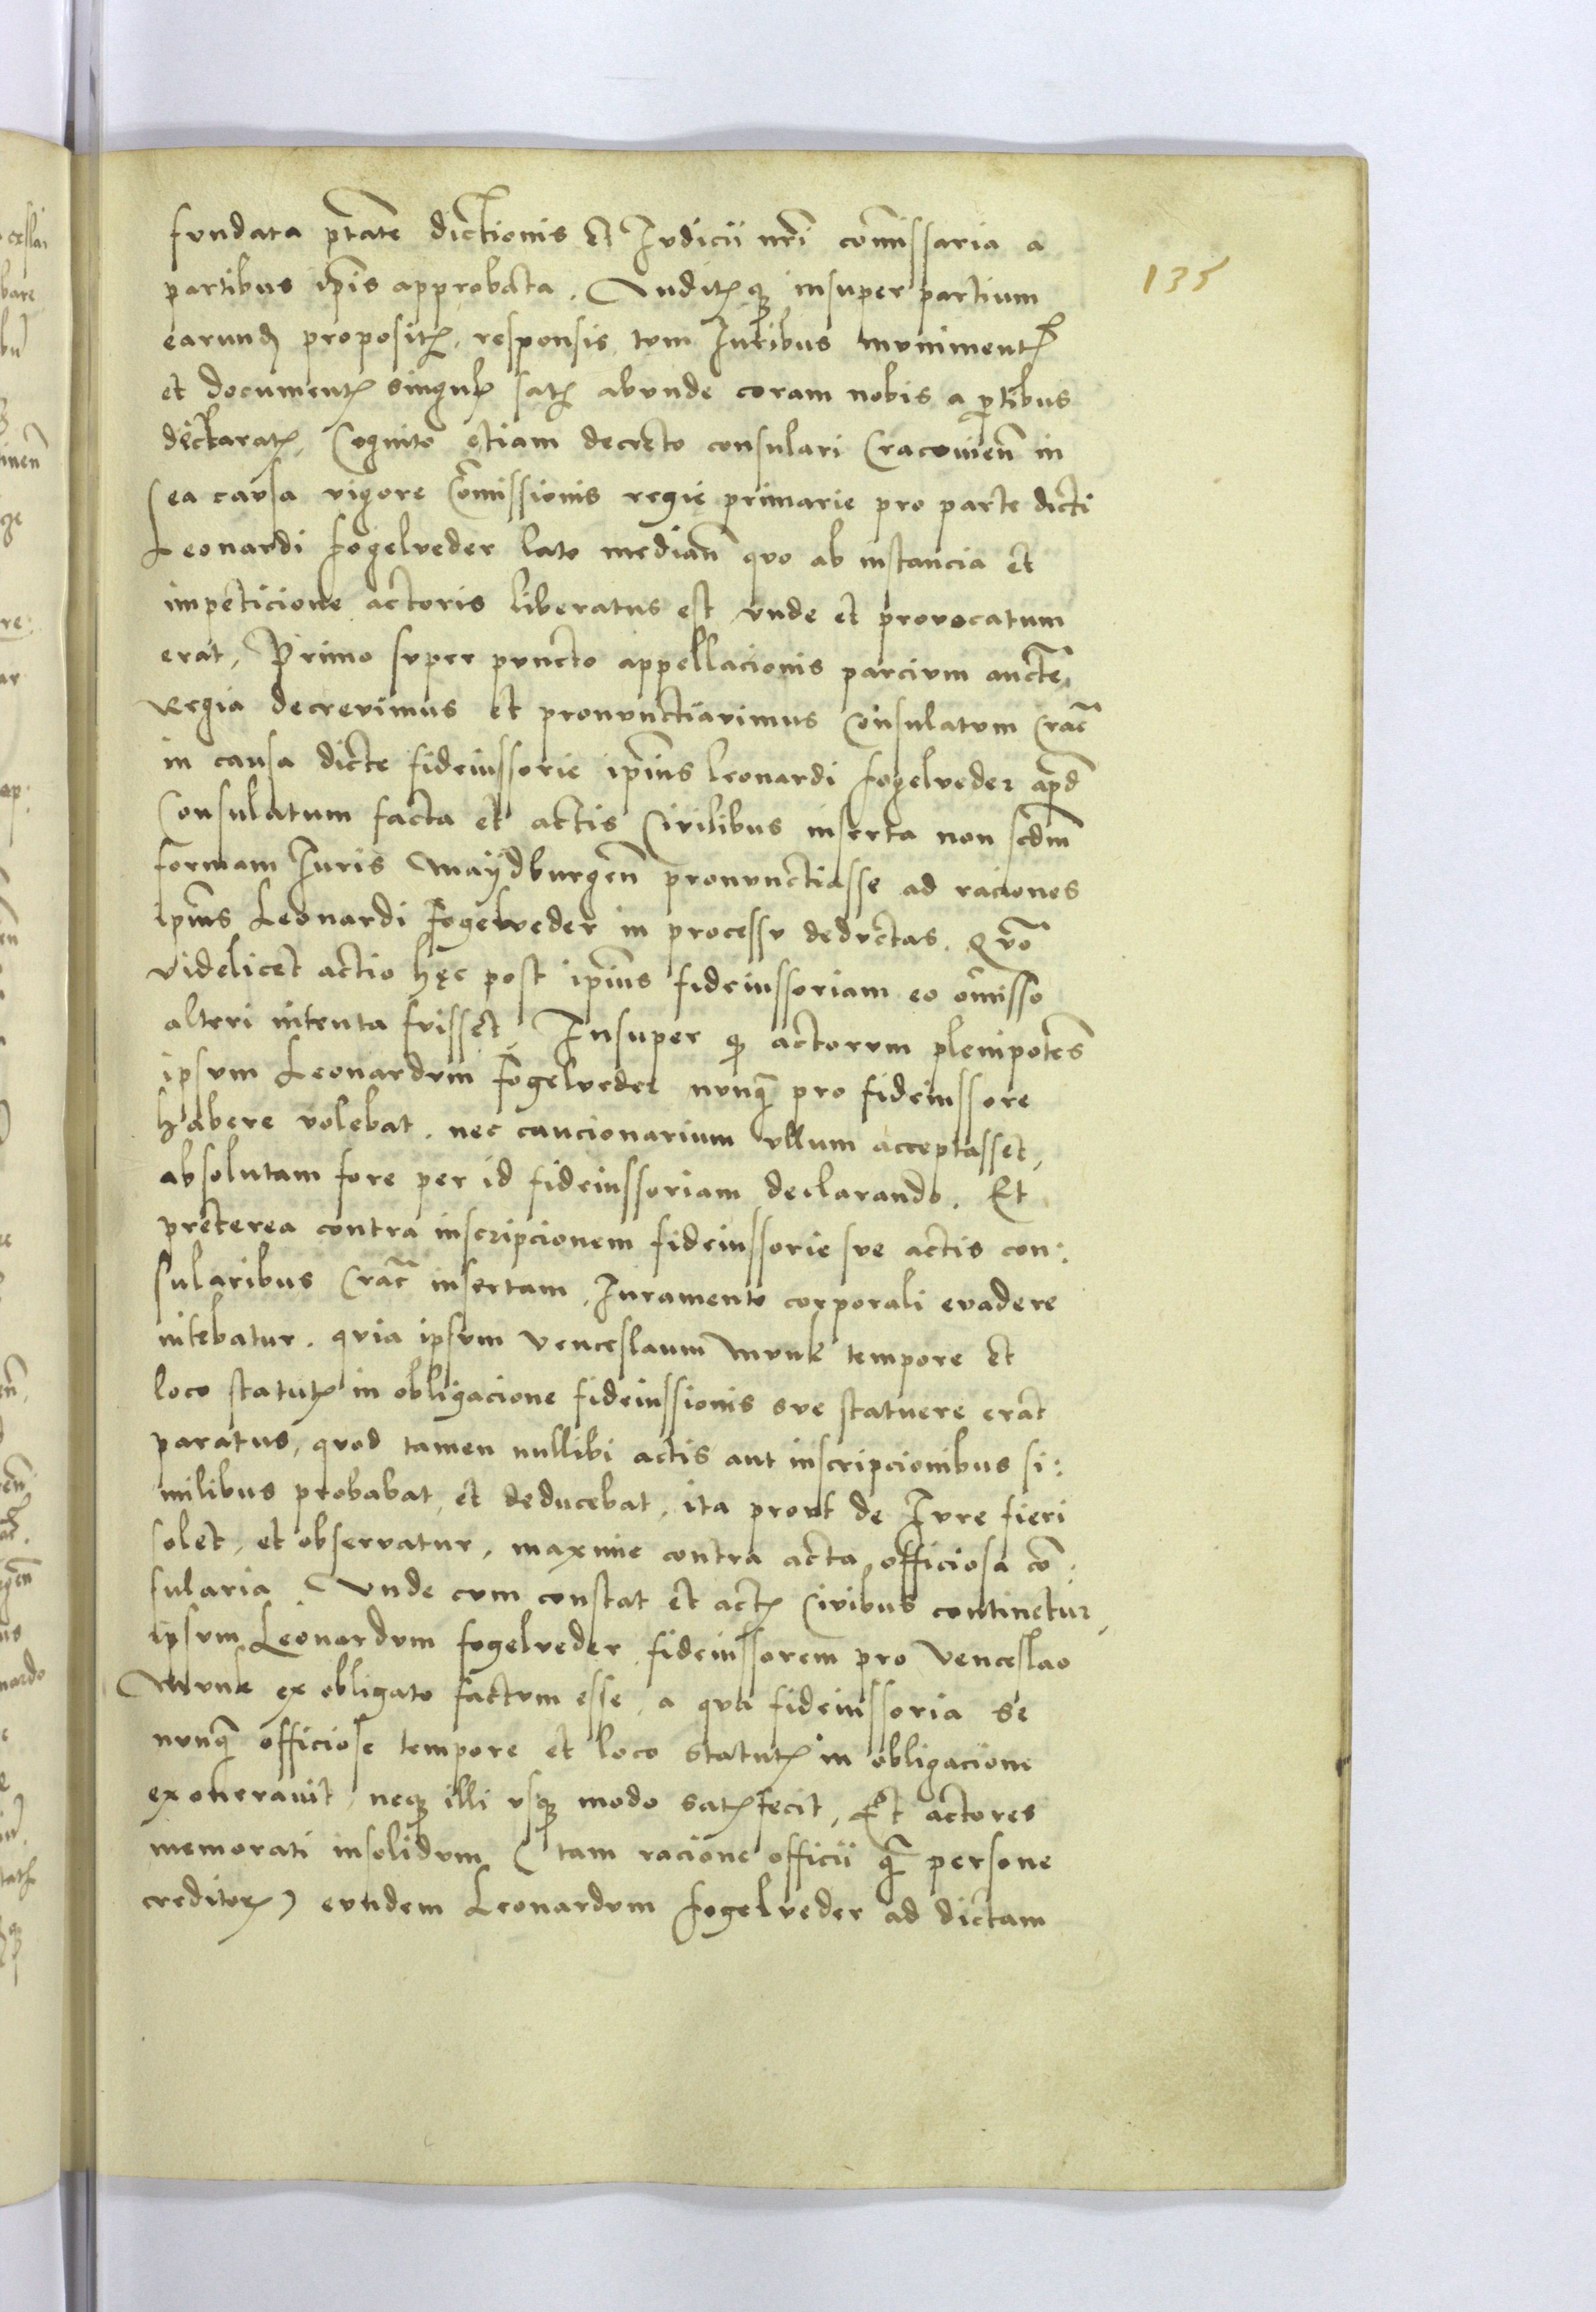 fundata p̄tate dictionis et Iudicii nr̄i com̄issaria a
partibus ip̄is approbata. Auditꝭ qꝫ insuper partium
135
earundꝫ propositꝭ, responsis tum Iuribus munimentꝭ
et documentꝭ singulꝭ satꝭ abunde coram nobis a ꝑtibus
declaratꝭ, Cognito etiam decreto consulari Cracouien̄ in
ea causa vigore Com̄issionis regie primarie pro parte dicti
Leonardi Fogelveder lato median̄ quo ab instancia et
impeticione actoris liberatus est vnde et prouocatum
erat, Primo super puncto appellacionis parcium auct̄e
Regia decreuimus et pronunctiauimus Consulatum Crac̄
in causa dicte fideiussorie ip̄ius Leonardi Fogelveder apd̄
Consulatum facta et actis Ciuilibus inserta non scd̄m
formam Iuris Maÿdburgen̄ pronunctiasse ad raciones
ip̄ius Leonardi Fogelveder in processu deductas. Quō
videlicet actio hęc post ip̄ius fideiussoriam eo omisso
alteri intenta fuisset, Insuper qꝫ actorum plenipotēs
ipsum Leonardum Fogelveder nunꝗ̄ pro fideiussore
habere volebat. nec caucionarium vllum acceptasset,
absolutam fore per id fideiussoriam declarando. Et
preterea contra inscripcionem fideiussorie sue actis con:
sularibus Crac̄ insertam, Iuramento corporali euadere
nitebatur. quia ipsum Venceslaum Munk tempore et
loco statutꝭ in obligacione fideiussionis sue statuere erat
paratus, quod tamen nullibi actis aut inscripcionibus si:
milibus probabat et deducebat, ita prout de Iure fieri
solet, et obseruatur, maxime contra acta officiosa cō:
sularia. Vnde cum constat et actꝭ Ciuibus continetur,
ipsum Leonardum Fogelveder fideiussorem pro Venceslao
Munk ex obligato factum esse, a qua fideiussoria se
nunꝗ̄ officiose tempore et loco statutꝭ in obligacione
exonerauit, neqꝫ illi vsqꝫ modo satꝭfecit, Et actores
memorati insolidum (tam racione officii ꝗ̄ persone
creditorꝭ) eundem Leonardum Fogelveder ad dictam